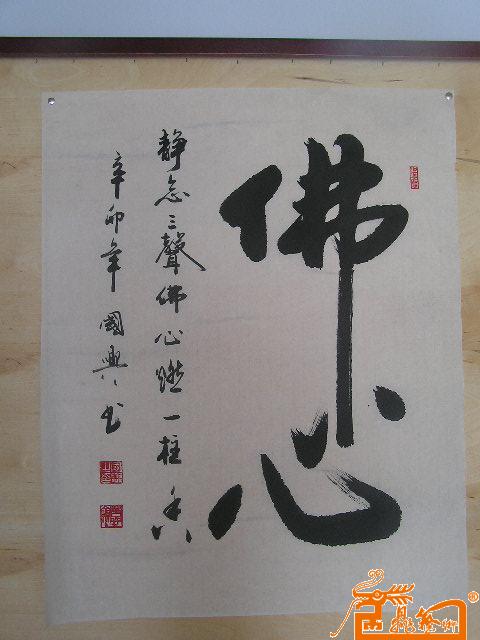 佛心
静念三聲佛心燃一柱香
辛卯年國興書